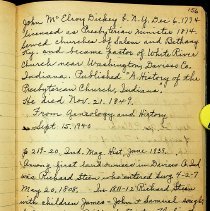 156
John Mc Elroy Dickey b. N.Y. Dec. 6, 1774.
licensed as Presbyterian minister 1814.
Served churches of Salem and Bethany
and became pastor of White River
Church near Washington Daviess Co.
Indiana. Published "A History of the
Presbyterian Church, Indiana.
He died Nov. 21. 1849.
From Geneology and History
Sept. 15. 1940
p 218-20, Ind. Mag. Hist. June. 1935.
Among first land owners in Daviess Co. Ind.
was Richard Steen who entered Survey 4-2-7
May 20, 1808. In 1811-12 Richard Steen
with children James - John & Samuel